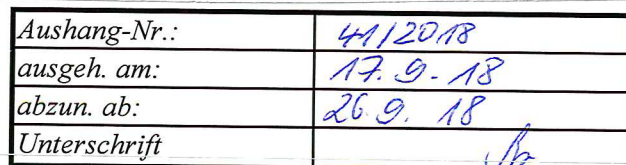 Aushang-Nr.: 41/2018
ausgeh. am: 17.9.-18
abzun. ab: 26.9.18
Unterschrift